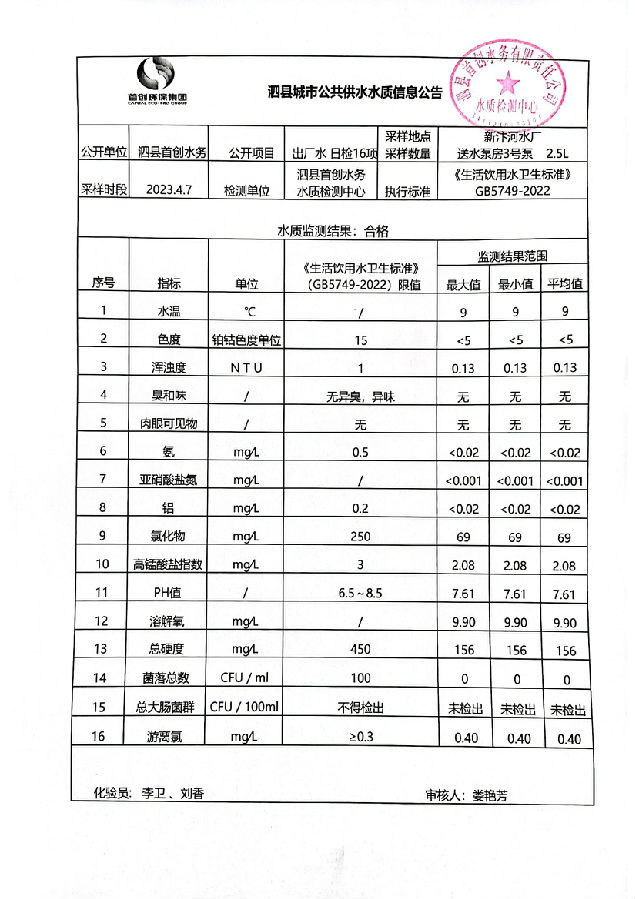 首创环保集团
CAPITAL ECO-PRO GROUP
泗县城市公共供水水质信息公告
泗县首创水务有限责任公司
水质检测中心
公开单位 泗县首创水务 公开项目 出厂水 日检16项 采样地点 采样数量 新汴河水厂 送水泵房3号泵 2.5L
采样时段 2023.4.7 检测单位 泗县首创水务 水质检测中心 执行标准 《生活饮用水卫生标准》 GB5749-2022
水质监测结果：合格
序号 指标 单位 《生活饮用水卫生标准》（GB5749-2022）限值 监测结果范围
最大值 最小值 平均值
1 水温 ℃ / 9 9 9
2 色度 铂钴色度单位 15 <5 <5 <5
3 浑浊度 NTU 1 0.13 0.13 0.13
4 臭和味 / 无异臭，异味 无 无 无
5 肉眼可见物 / 无 无 无 无
6 氨 mg/L 0.5 <0.02 <0.02 <0.02
7 亚硝酸盐氮 mg/L / <0.001 <0.001 <0.001
8 铝 mg/L 0.2 <0.02 <0.02 <0.02
9 氯化物 mg/L 250 69 69 69
10 高锰酸盐指数 mg/L 3 2.08 2.08 2.08
11 PH值 / 6.5～8.5 7.61 7.61 7.61
12 溶解氧 mg/L / 9.90 9.90 9.90
13 总硬度 mg/L 450 156 156 156
14 菌落总数 CFU / ml 100 0 0 0
15 总大肠菌群 CFU / 100ml 不得检出 未检出 未检出 未检出
16 游离氯 mg/L ≥0.3 0.40 0.40 0.40
化验员：李卫、刘香 审核人：娄艳芳